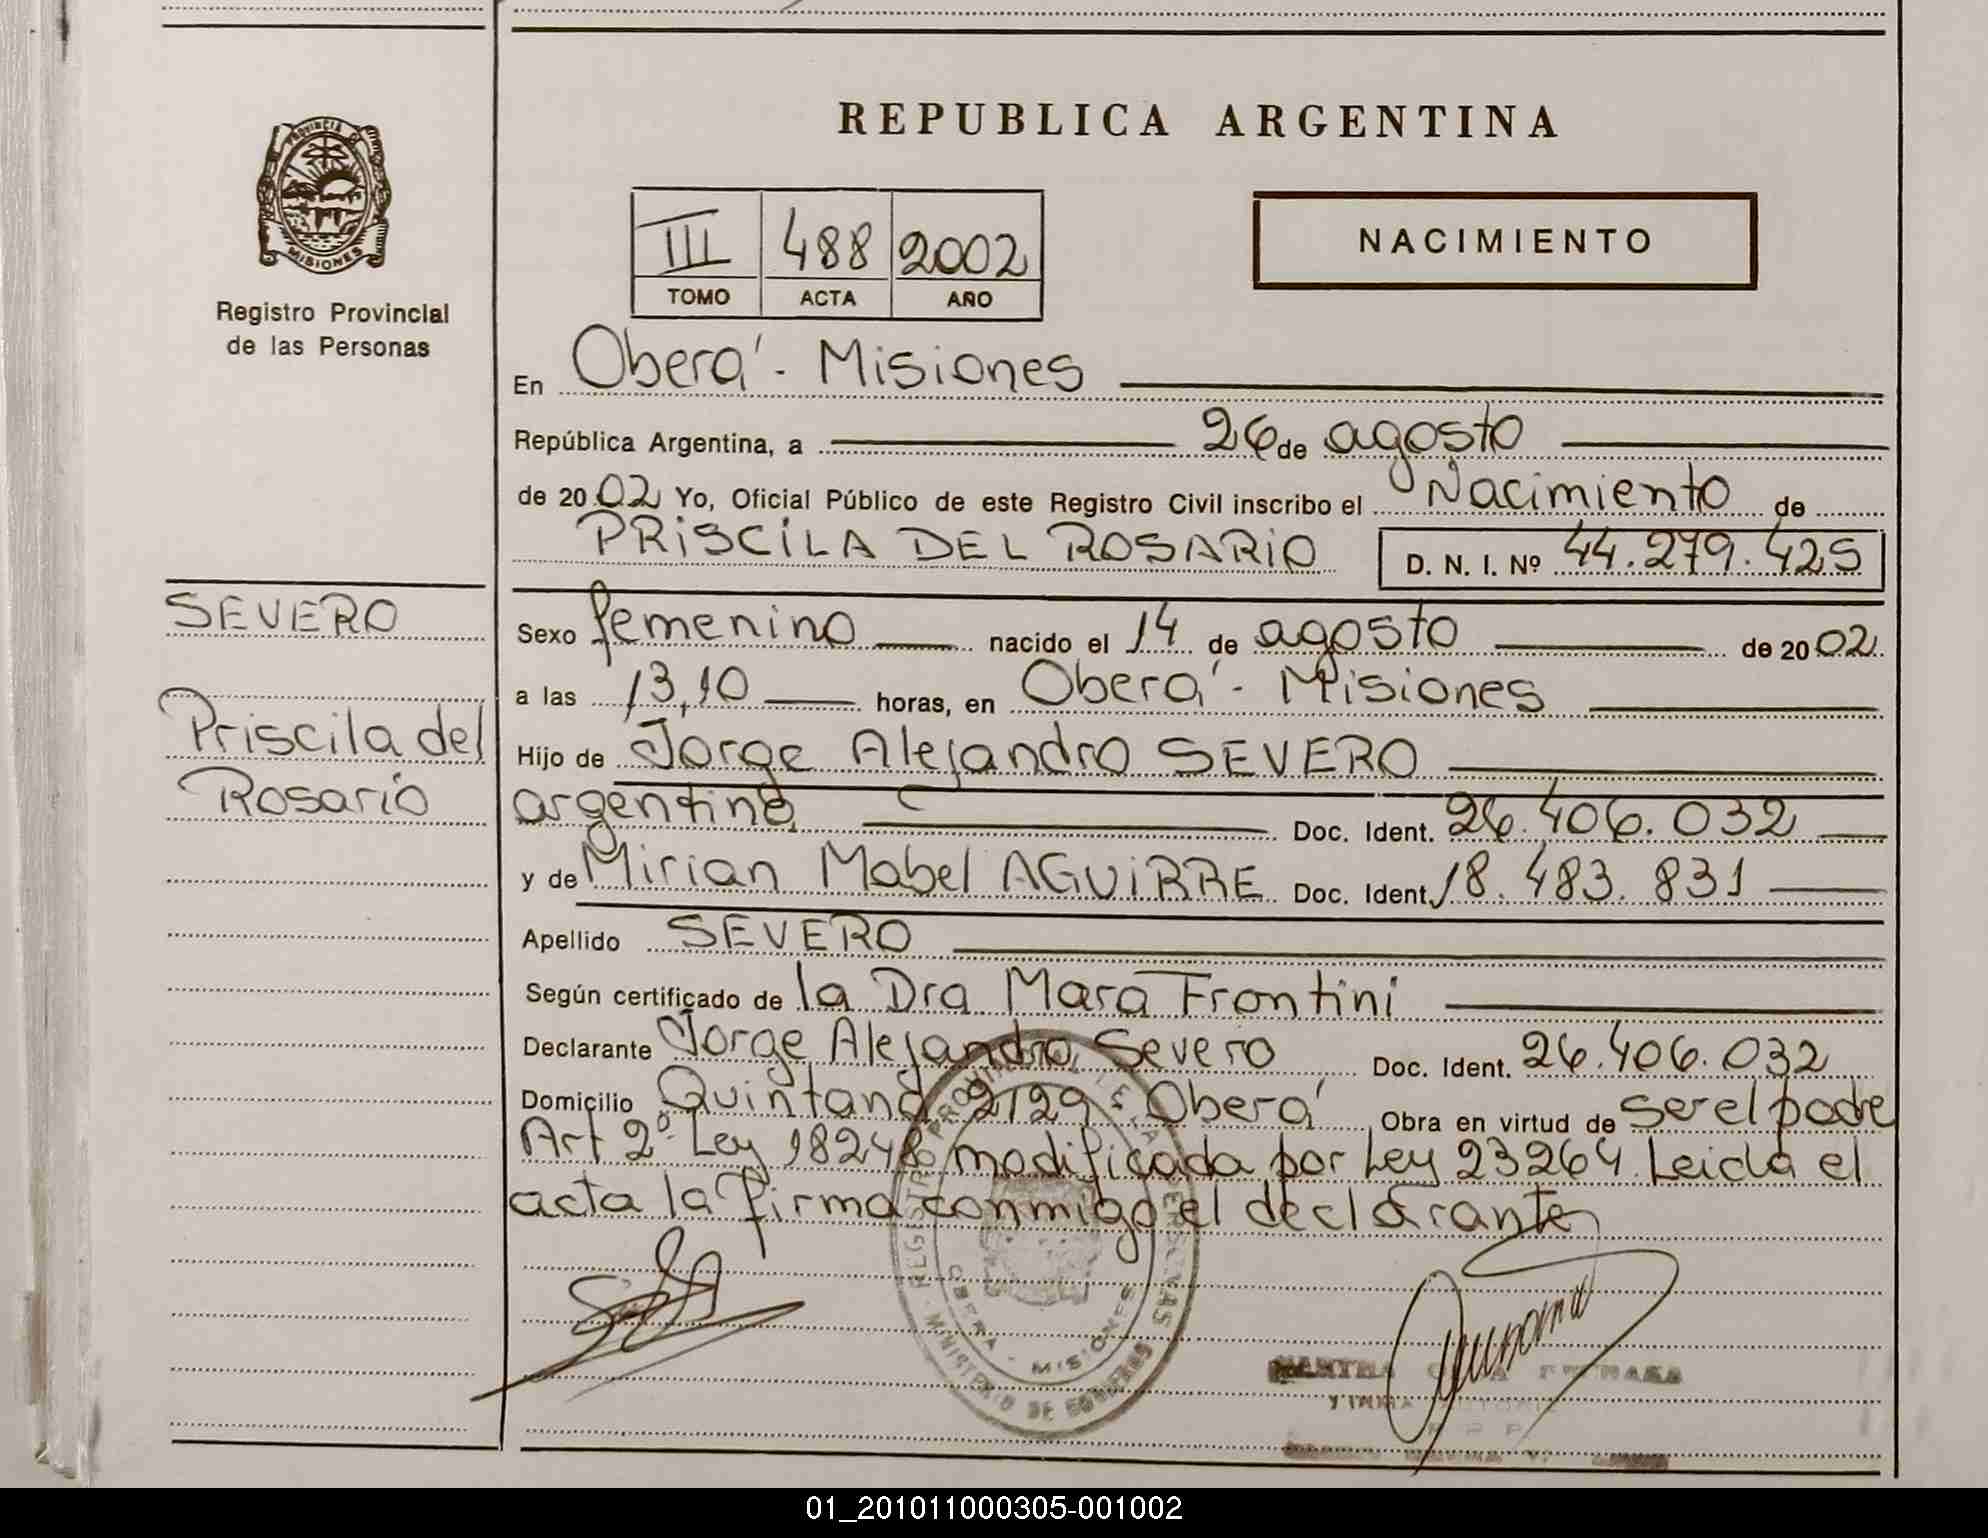 REPUBLICA ARGENTINA
PROVINCIA D
MISIONES
Registro Provincial
de las Personas
III 488 2002
TOMO ACTA AÑO
NACIMIENTO
En Oberá - Misiones
República Argentina, a 26 de agosto
de 2002 Yo, Oficial Público de este Registro Civil inscribo el Nacimiento de
PRISCILA DEL ROSARIO D. N. I. Nº 44.279.425
SEVERO
Priscila del
Rosario
Sexo femenino nacido el 14 de agosto de 2002
a las 13,10 horas, en Oberá - Misiones
Hijo de Jorge Alejandro SEVERO
argentino Doc. Ident. 26.406.032
y de Mirian Mabel AGUIRRE Doc. Ident. 18.483.831
Apellido SEVERO
Según certificado de la Dra Mara Frontini
Declarante Jorge Alejandro Severo Doc. Ident. 26.406.032
Domicilio Quintana 2129 Oberá Obra en virtud de ser el padre
Art 2º Ley 18248 modificada por Ley 23264 Leida el
acta la firma conmigo el declarante
REGISTRO PROVINCIAL DE LAS PERSONAS
OBERA - MISIONES
MINISTERIO DE GOBIERNO
MARTHA
01_201011000305-001002